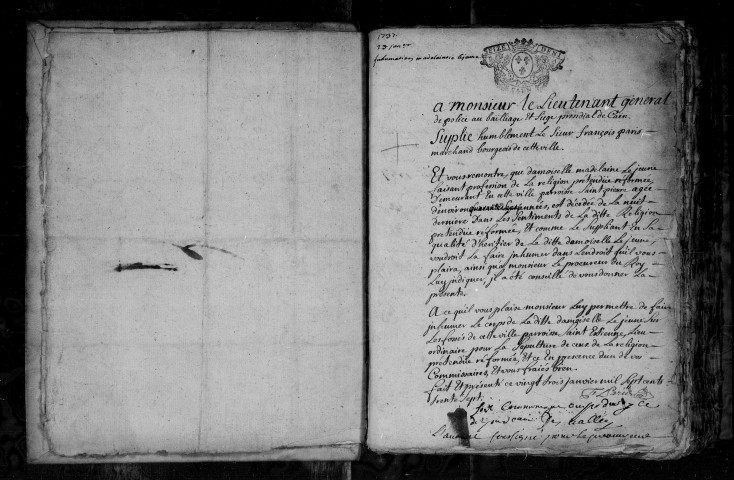 1737.
23 janer
inhumation madelaine le jeune
a monsieur le Lieutenant general
de police au bailliage et siege presidial de Caen.
Suplie humblement Le Sieur françois paris
marchand bourgeois de cette ville.
Et vous remontre, que damoiselle madelaine Le jeune
faisant profession de La religion pretendüe reformée,
demeurant En cette ville parroisse Saint pierre agée
d'environ années, est décédée de La nuit
derniere dans Les Sentiments de La ditte Religion
pretendüe reformée, Et comme Le Supliant En Sa
qualité d'heritier de La ditte damoiselle Le jeune,
voudroit La faire jnhumer dans L'endroit qu'il vous
plaira, ainsi qu'a monsieur Le procureur du Roy
Luy jndiquer, il a eté conseillé de vous donner La
presente.
A ce qu'il vous plaise monsieur Luy permettre de faire
jnhumer Le corps de La ditte damoiselle Le jeune Sur
Les fossés de cette ville parroisse Saint Estienne, Lieu
ordinaire pour La Sepulture de ceux de La religion
pretendüe reformée, Et ce En presence d'un de vos
Commissaires, Et vous ferés bien.
fait Et presenté ce vingt trois janvier mil Sept cents
trente Sept.
f. Paris
Soit Communiqué au procureur du Roy ce